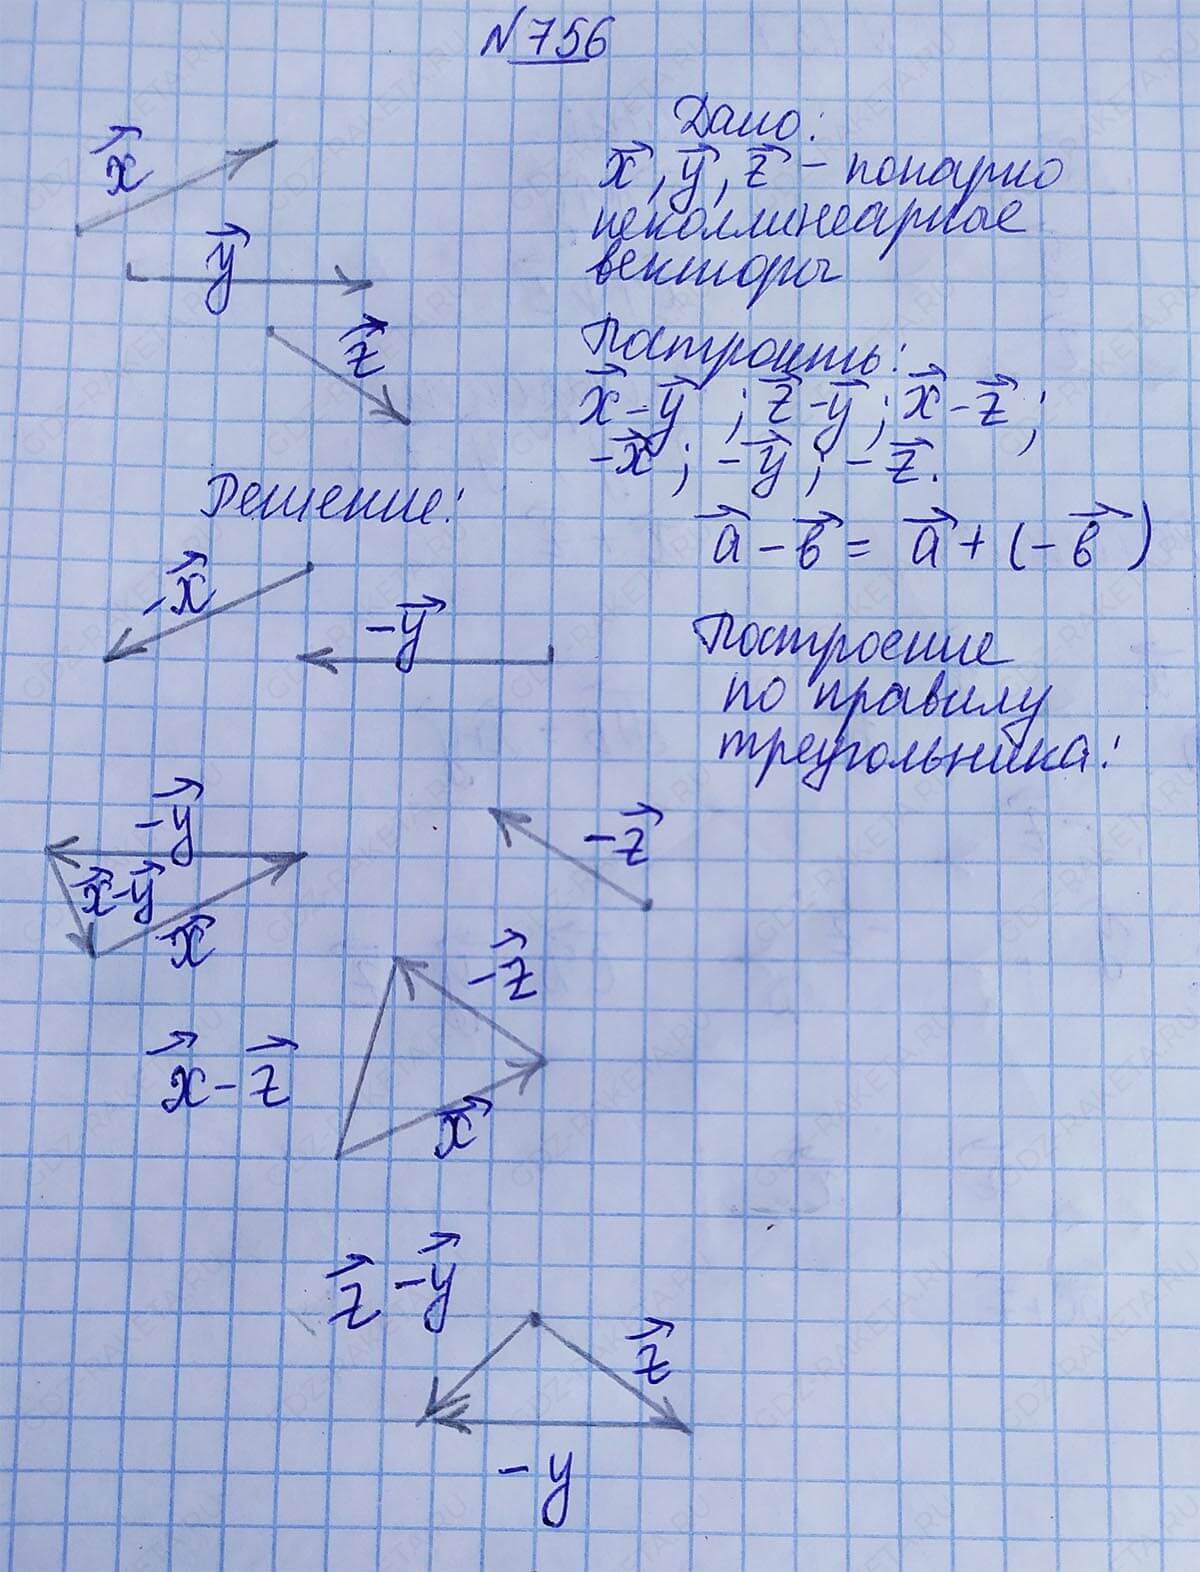 N756
Дано:
x⃗, y⃗, z⃗ – попарно
неколлинеарные
векторы
Построить:
x⃗ – y⃗ ; z⃗ – y⃗ ; x⃗ – z⃗ ;
–x⃗ ; –y⃗ ; –z⃗.
a⃗ – в⃗ = a⃗ + (–в⃗)
Построение
по правилу
треугольника:
x⃗
y⃗
z⃗
Решение:
–x⃗
–y⃗
–y⃗
x⃗–y⃗
x⃗
–z⃗
–z⃗
x⃗ – z⃗
x⃗
z⃗ – y⃗
z⃗
–y
GDZ-RAKETA.RU